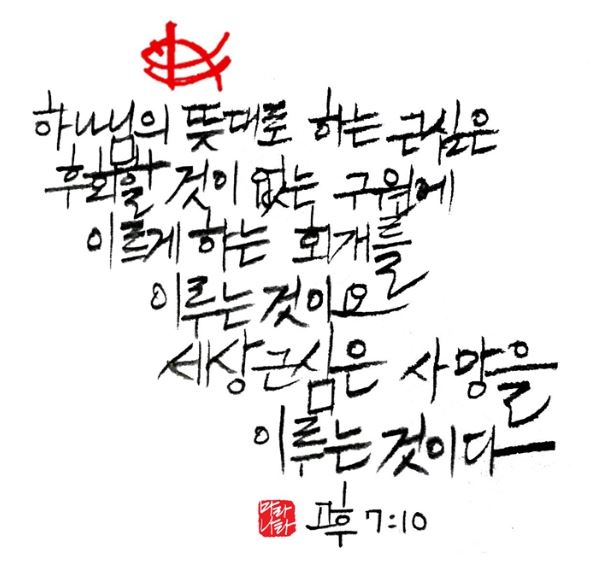 하나님의 뜻대로 하는 근심은
후회할 것이 없는 구원에
이르게 하는 회개를
이루는 것이요
세상근심은 사망을
이루는 것이다
마라
나타
고후 7:10